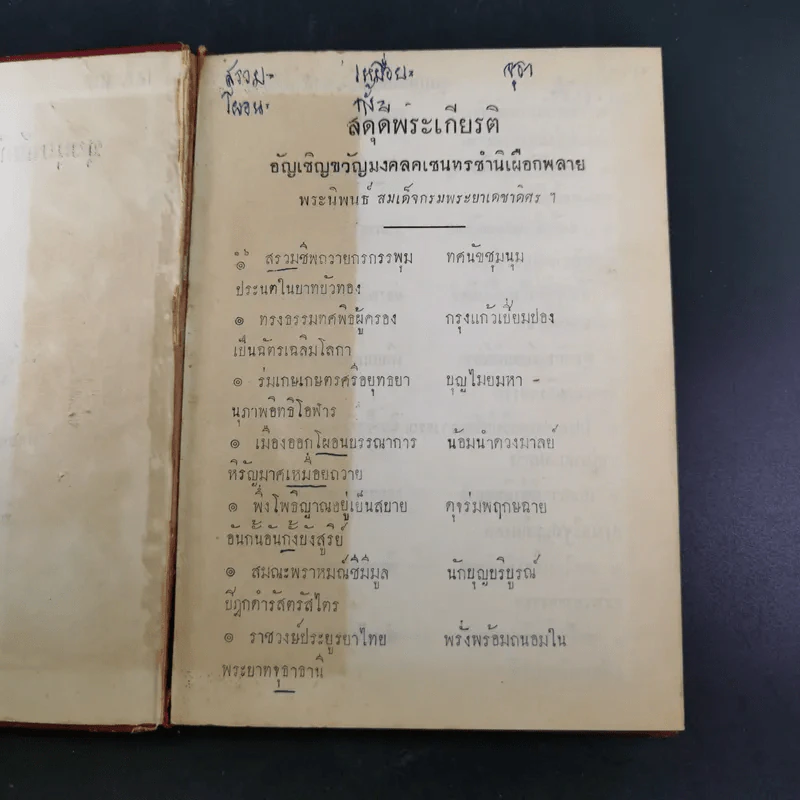 สรวม= เหมือย= จุธา
โผอน= กั้ง=
สดุดีพระเกียรติ
อัญเชิญขวัญมงคลคเชนทรชำนิเผือกพลาย
พระนิพนธ์ สมเด็จกรมพระยาเดชาดิศร ฯ
๑๖ ๏ สรวมชีพถวายกรกรรพุม ทศนัขชุมนุม
ประนตในบาทบัวทอง
๏ ทรงธรรมทศพิธผู้ครอง กรุงแก้วเยี่ยมปอง
เป็นฉัตรเฉลิมโลกา
๏ ร่มเกษเกษตรศรีอยุทธยา บุญไมยมหา -
นุภาพอิทธิโอฬาร
๏ เมืองออกโผอนบรรณาการ น้อมนำดวงมาลย์
หิรัญมาศเหมือยถวาย
๏ พึ่งโพธิญาณอยู่เย็นสบาย ดุจร่มพฤกษฉาย
อันกนั้อันกั้งบังสูริย์
๏ สมณะพราหมณ์ชีมีมูล นักบุญบริบูรณ์
ปีฎกดำรัสตรัสไตร
๏ ราชวงษ์ประยูรยาไทย พรั่งพร้อมถนอมใน
พระบาทจุธาธานี